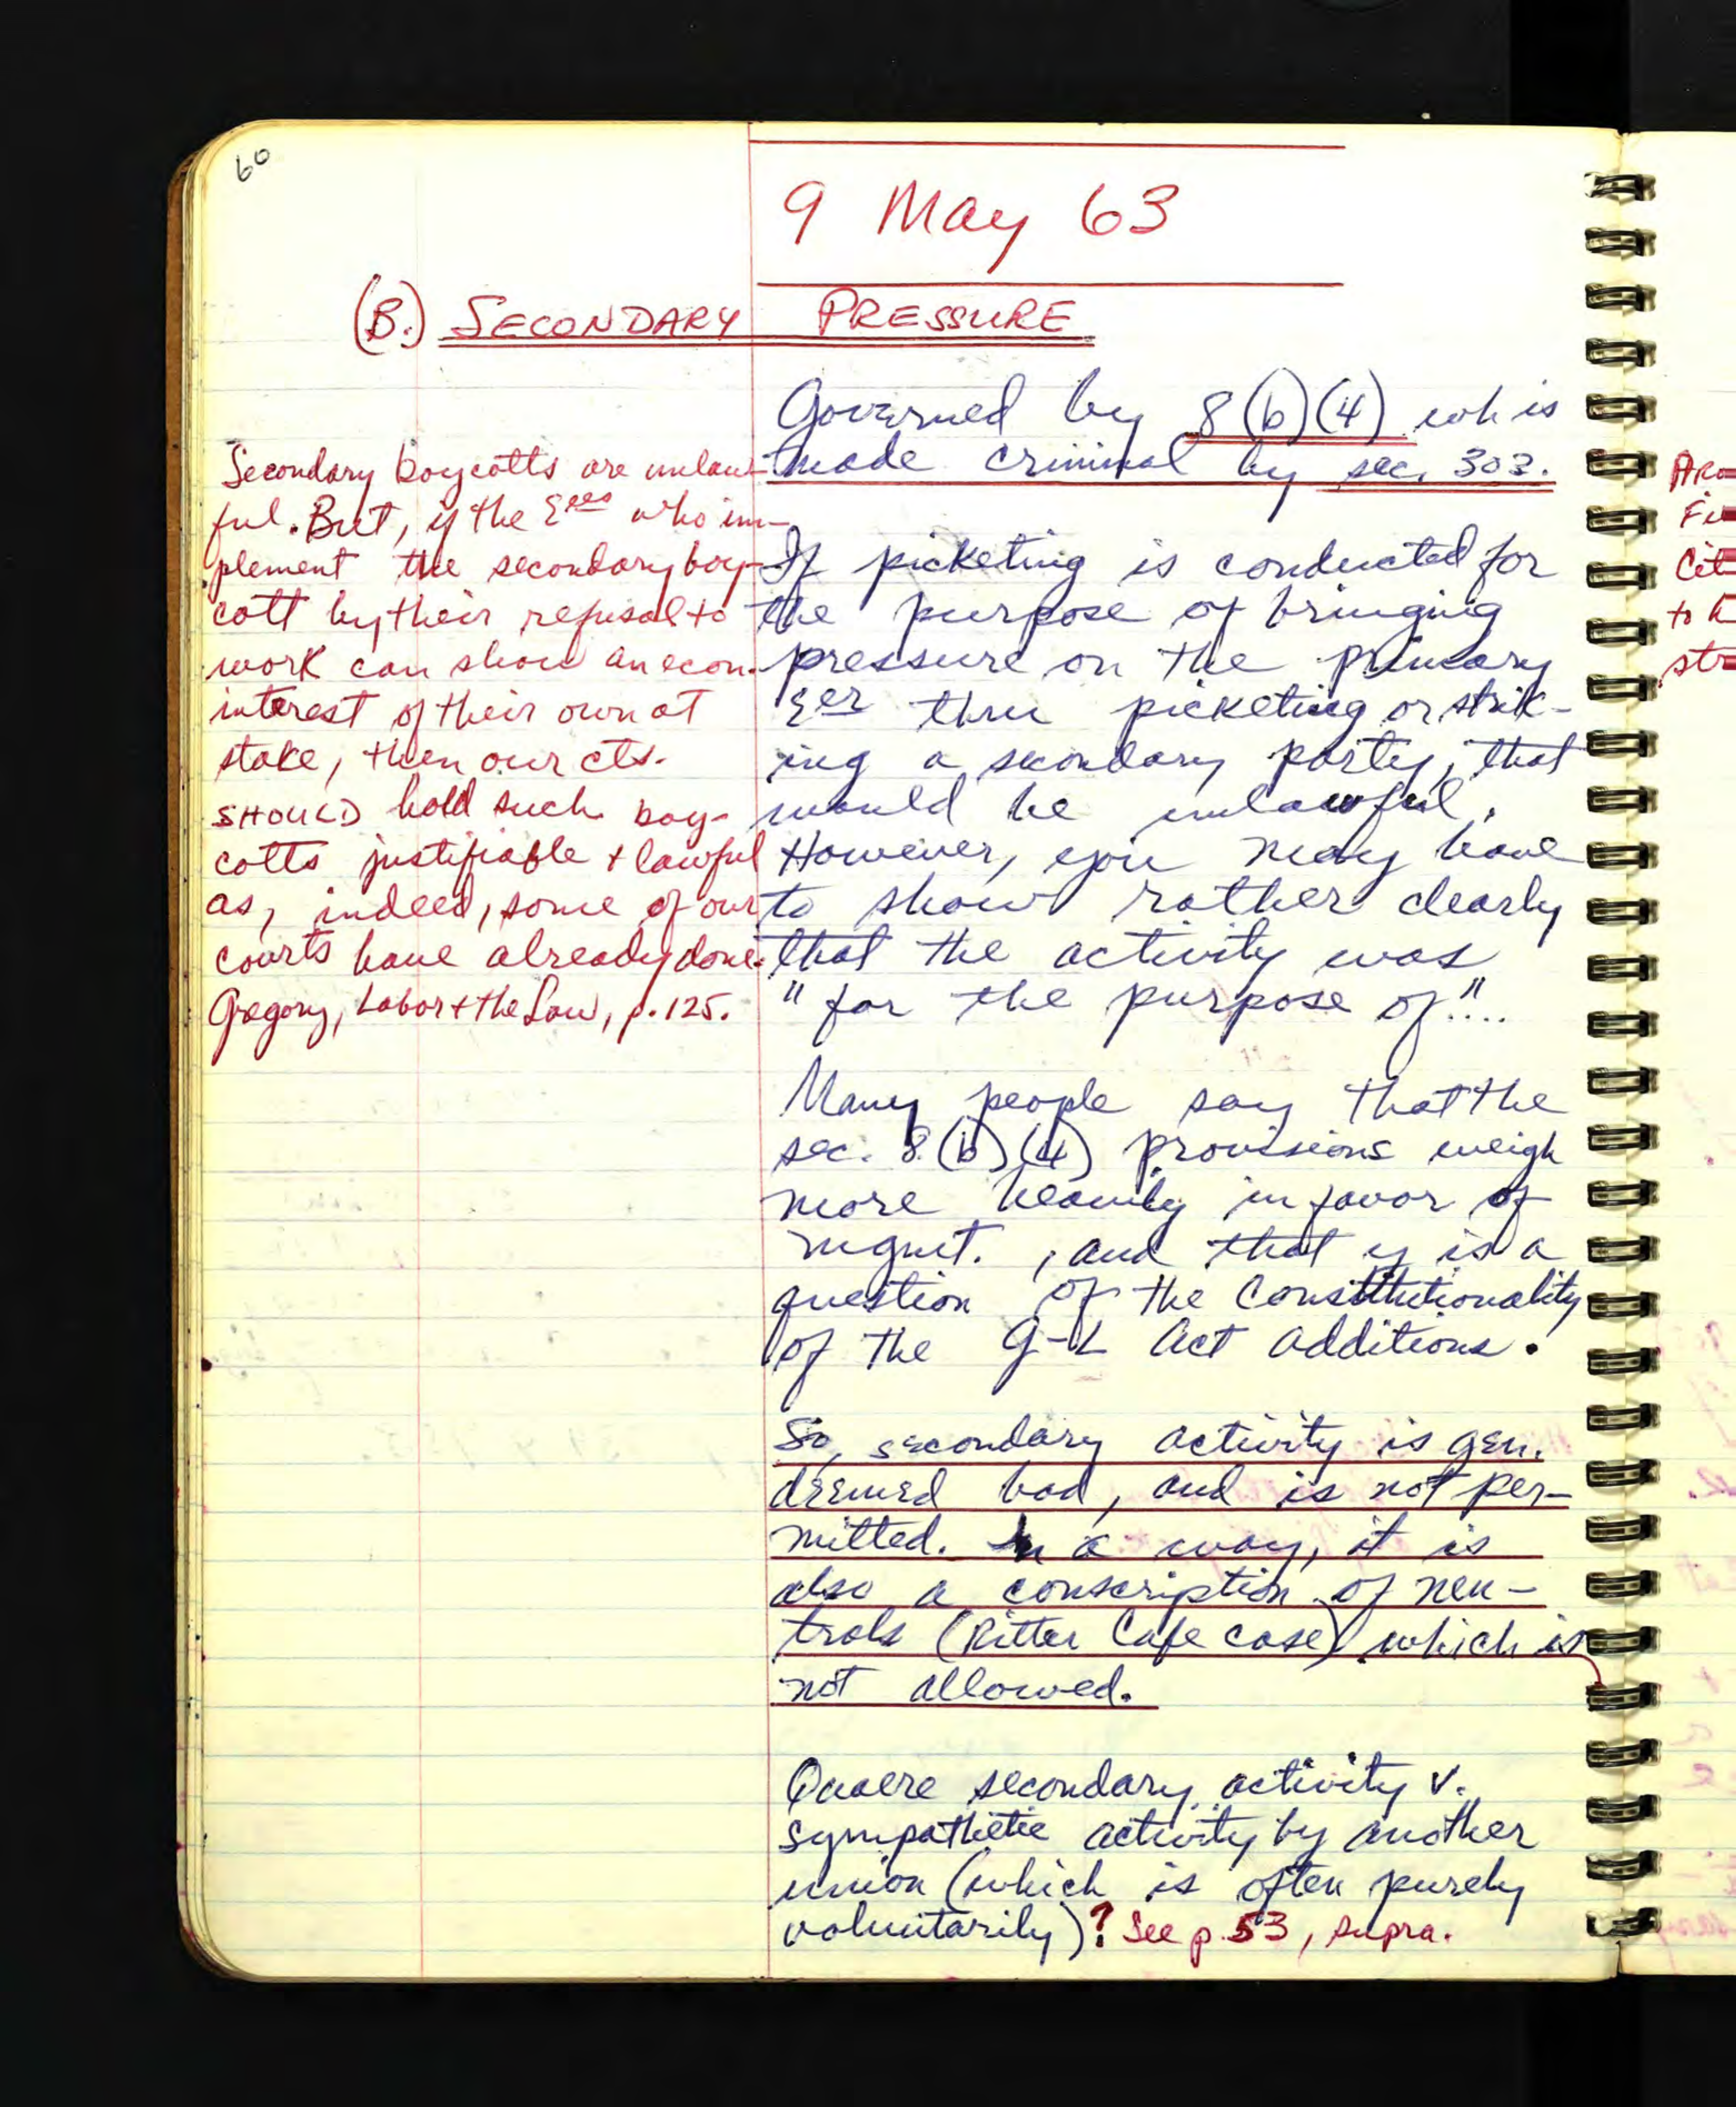 60
9 May 63
(B.) SECONDARY PRESSURE
Secondary boycotts are unlaw-
ful. But, if the Eees who im-
plement the secondary boy-
cott by their refusal to
work can show an econ.
interest of their own at
stake, then our cts.
SHOULD hold such boy-
cotts justifiable + lawful
as, indeed, some of our
courts have already done.
Gregory, Labor + the Law, p. 125.
Governed by 8(b)(4) wh is
made criminal by sec. 303.
If picketing is conducted for
the purpose of bringing
pressure on the primary
Eer thru picketing or strik-
ing a secondary party, that
would be unlawful.
However, you may have
to show rather clearly
that the activity was
"for the purpose of"....
Many people say that the
sec. 8(b)(4) provisions weigh
more heavily in favor of
mgmt., and that is a
question of the Constitutionality
of the G-L Act additions.
So, secondary activity is gen.
deemed bad, and is not per-
mitted. In a way, it is
also a conscription of neu-
trals (Ritter Cafe case) which is
not allowed.
Quaere secondary activity v.
sympathetic activity by another
union (which is often purely
voluntarily)? See p. 53, supra.
Cit
to
str